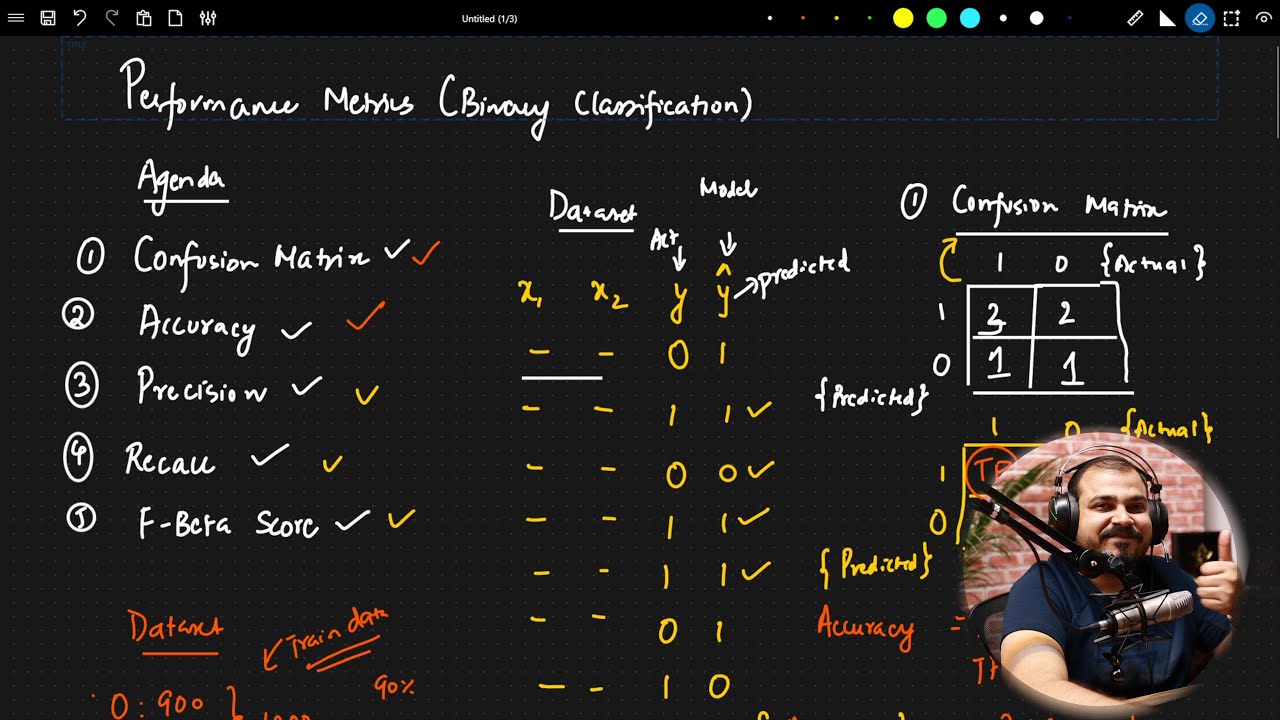 Untitled (1/3)
TITLE
Performance Metrics (Binary Classification)
Agenda
① Confusion Matrix ✓ ✓
② Accuracy ✓ ✓
③ Precision ✓ ✓
④ Recall ✓ ✓
⑤ F-Beta Score ✓ ✓
Dataset
Train data
90%
0: 900
Dataset
Model
Act
x₁ x₂ y ŷ → predicted
– – 0 1
– – 1 1 ✓
– – 0 0 ✓
– – 1 1 ✓
– – 1 1 ✓
– – 0 1
– – 1 0
① Confusion Matrix
1 0 {Actual}
1 3 2
0 1 1
{Predicted}
1 0 {Actual}
1
0
{Predicted}
Accuracy =